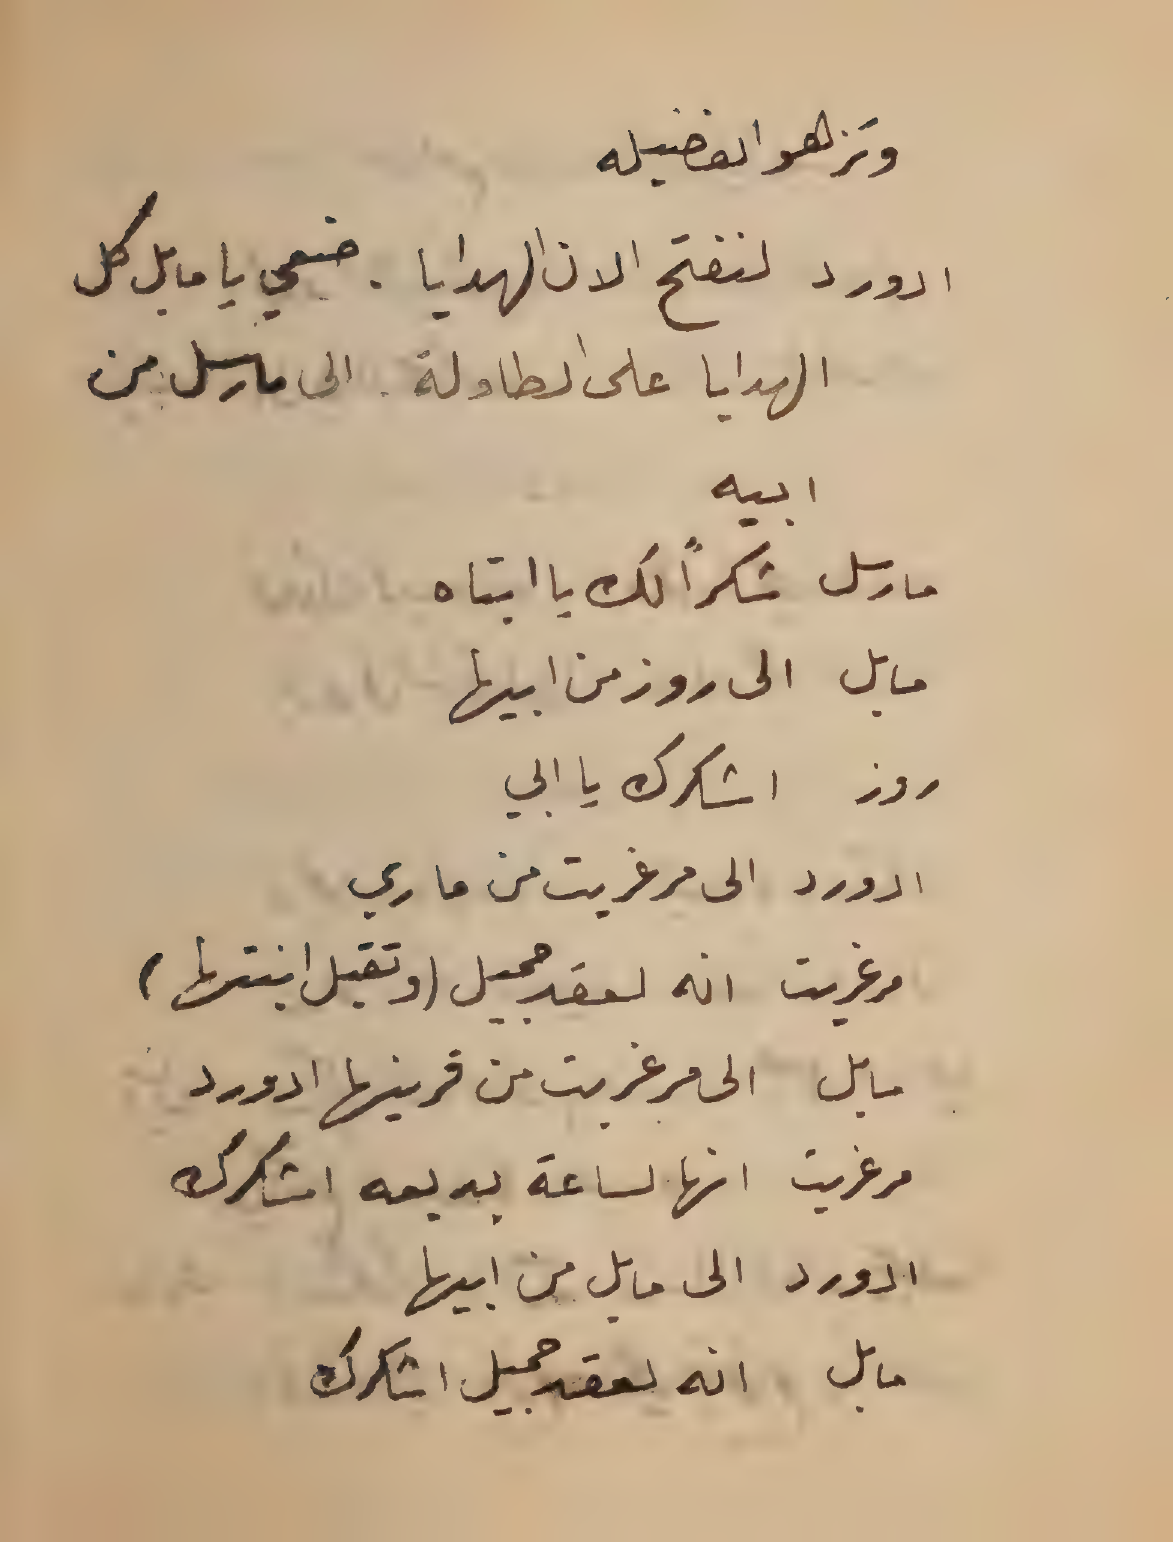 وتزهو الفضيله
ادورد لنفتح الان الهدايا . ضعي يا مابل كل
الهدايا على الطاولة . الى مارسل من
ابيه
مارسل شكراً لك يا ابتاه
مابل الى روز من ابيها
روز اشكرك يا ابي
ادورد الى مرغريت من ماري
مرغريت انه لعقد جميل (وتقبل ابنتها)
مابل الى مرغريت من قرينها ادورد
مرغريت انها لساعة بديعه اشكرك
ادورد الى مابل من ابيها
مابل انه لعقد جميل اشكرك